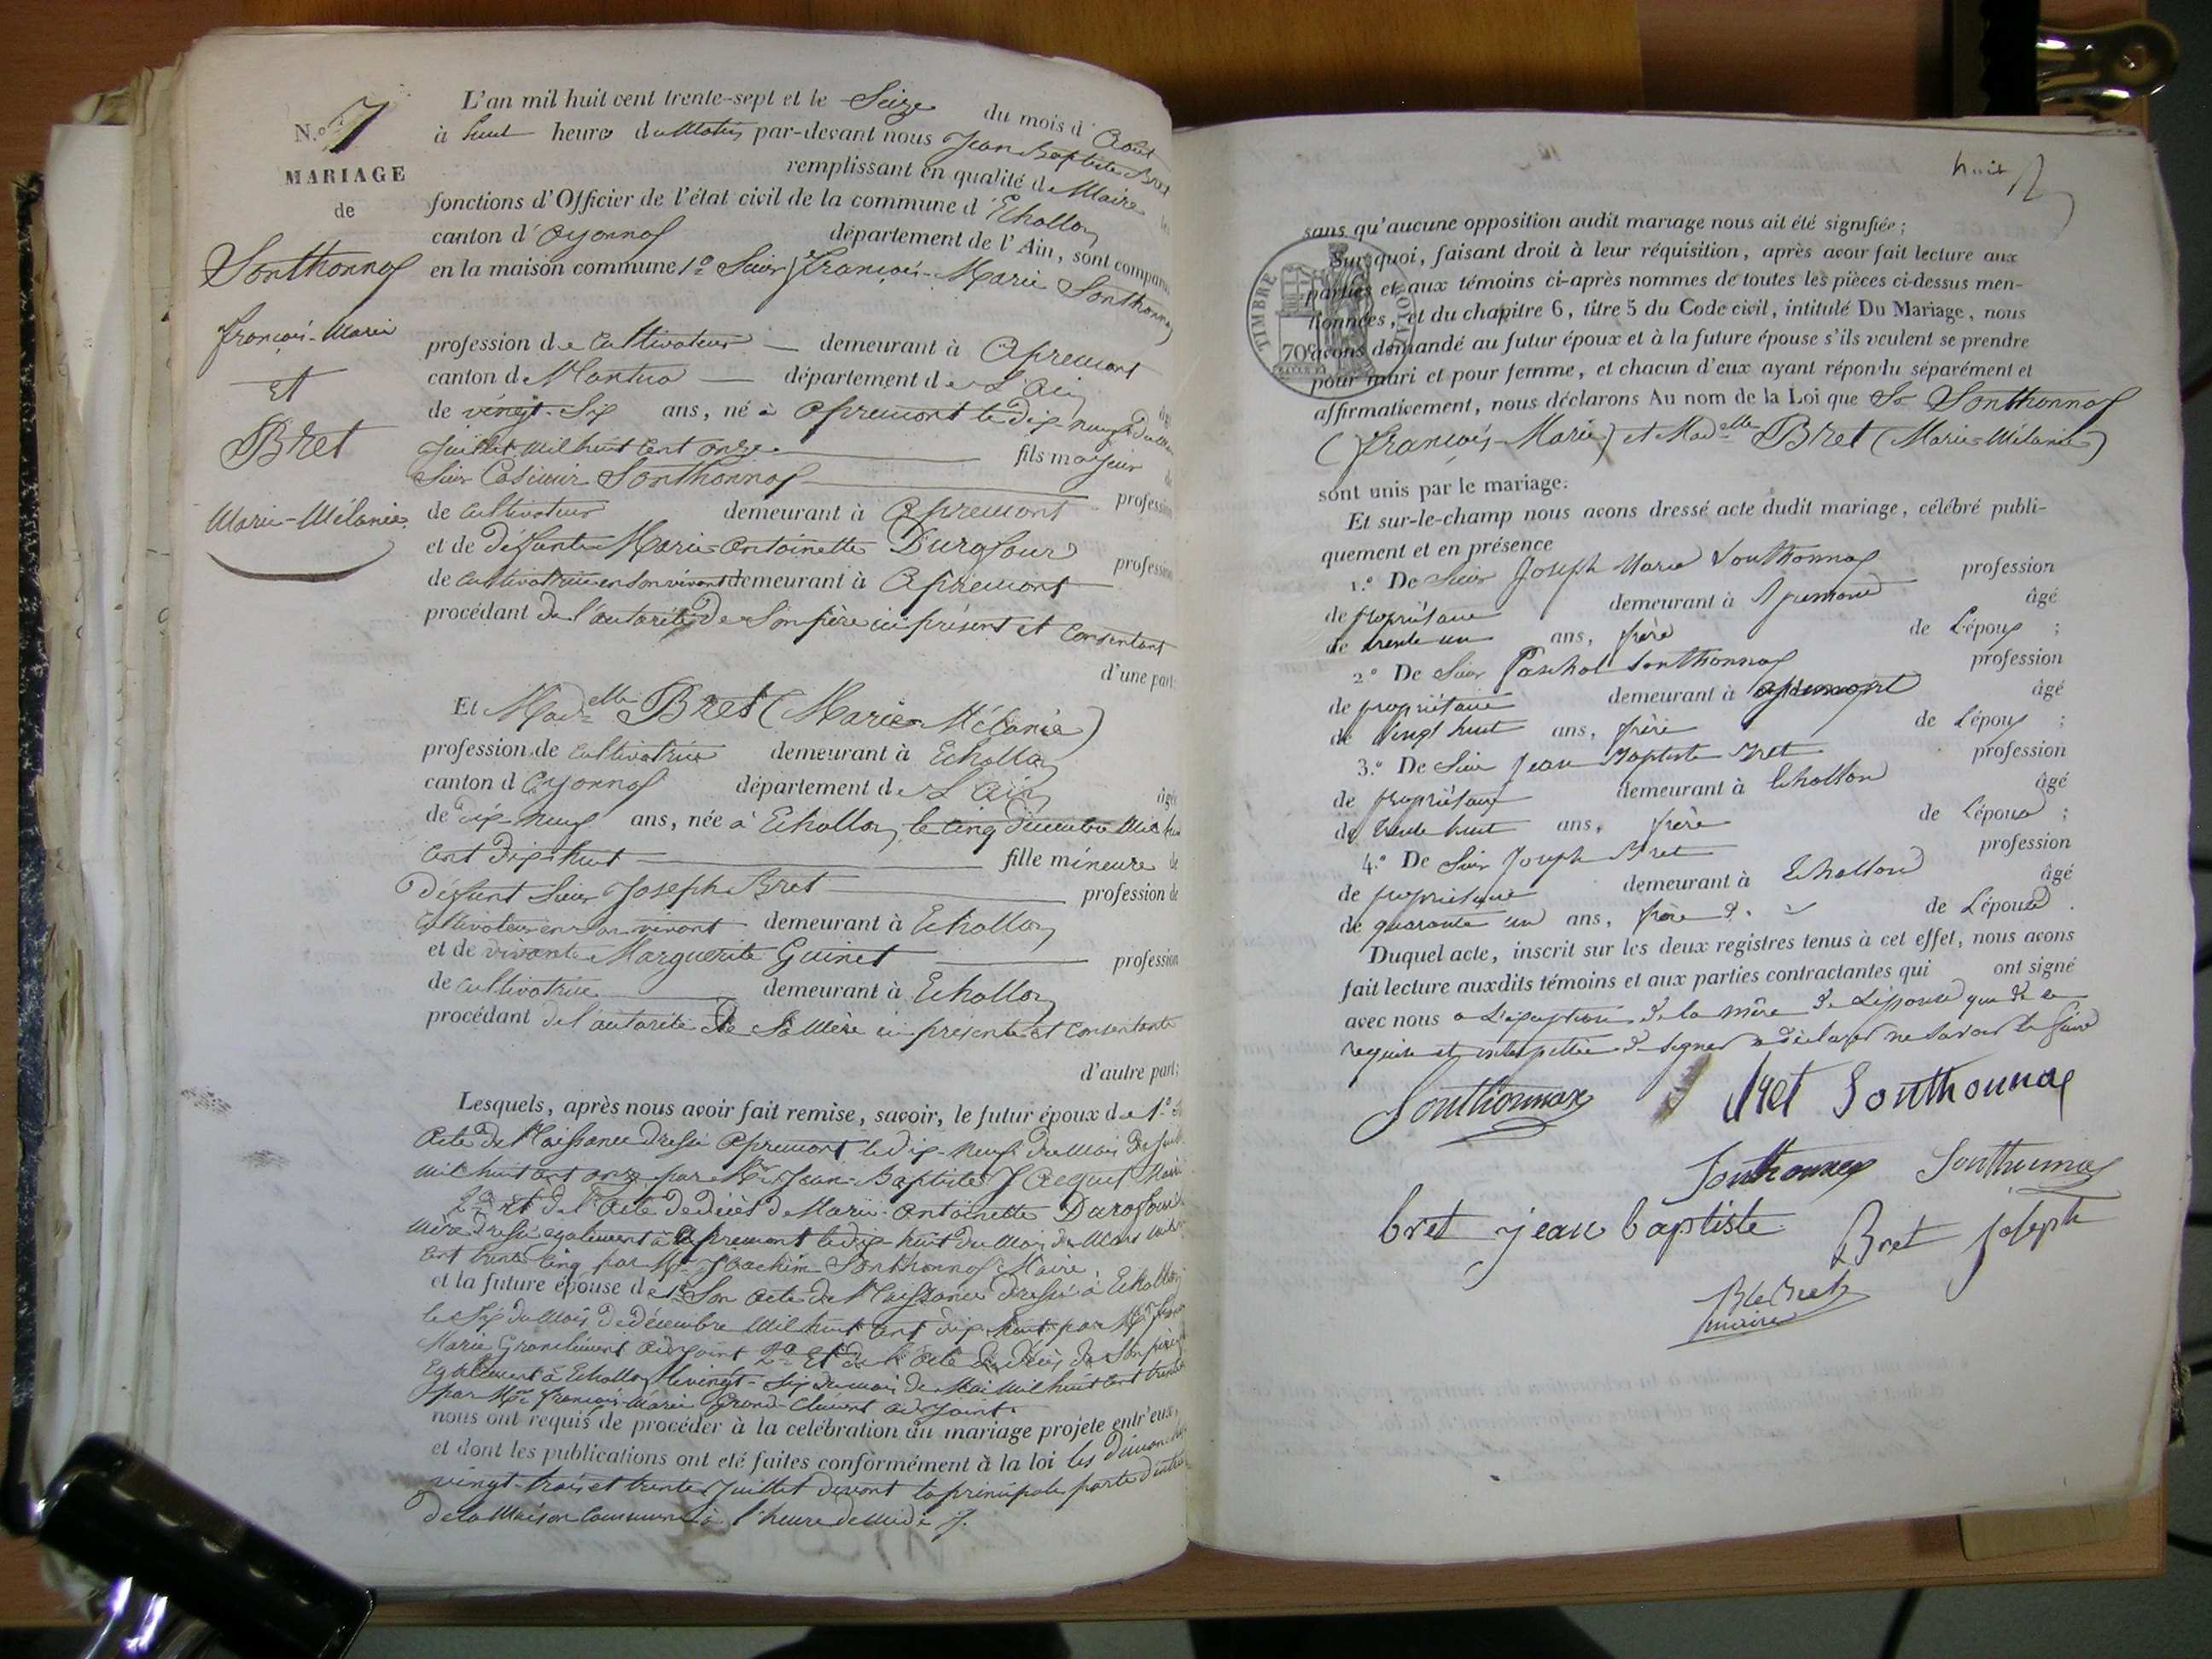 N.o 7
MARIAGE
de
Sonthonnax
françois-Marie
et
Bret
Marie-Mélanie
L'an mil huit cent trente-sept et le Seize du mois d'Août
à huit heures du Matin par-devant nous Jean Baptiste Bret
remplissant en qualité de Maire les
fonctions d'Officier de l'état civil de la commune d'Echallon
canton d'Oyonnax département de l'Ain, sont comparus
en la maison commune 1o Sieur françois-Marie Sonthonnax
profession de Cultivateur demeurant à Apremont
canton de Nantua département de L'Ain âgé
de vingt-six ans, né à Apremont le dix-neuf du Mois
Juillet mil huit cent onze fils majeur de
Sieur Casimir Sonthonnax profession
de Cultivateur demeurant à Apremont
et de défunte Marie-Antoinette Durafour profession
de Cultivatrice en son vivant demeurant à Apremont
procédant de l'autorité de Son père ici présent et Consentant
d'une part
Et Madelle Bret (Marie-Mélanie)
profession de Cultivatrice demeurant à Echallon
canton d'Oyonnax département de L'Ain âgée
de dix-neuf ans, née à Echallon, le cinq décembre Mil huit
Cent dix-huit fille mineure de
défunt Sieur Joseph Bret profession de
Cultivateur en son vivant demeurant à Echallon
et de vivante Marguerite Guinet profession
de Cultivatrice demeurant à Echallon
procédant de l'autorité de Sa Mère ici présente et Consentante
d'autre part;
Lesquels, après nous avoir fait remise, savoir, le futur époux de 1o Son
Acte de Naissance dressé Apremont le dix-neuf du Mois de Juillet
mil huit cent onze par Mr Jean-Baptiste Jacquet Maire
2o Et de l'Acte de décès de Marie-Antoinette Durafour Sa
Mère dressé également à Apremont le dix-huit du Mois de Mars mil huit
Cent trente cinq par Mr Joachim Sonthonnax Maire,
et la future épouse de 1o Son Acte de Naissance dressé à Echallon
le Six du Mois de décembre Mil huit Cent dix-huit par Mr françois
Marie Grandclément adjoint 2o Et de l'Acte de décès de Son père
Egalement à Echallon le vingt-six du mois de Mai Mil huit Cent trente
par Mr françois-Marie Grand-Clément adjoint.
nous ont requis de procéder à la célébration du mariage projeté entr'eux,
et dont les publications ont été faites conformément à la loi les dimanches
vingt-trois et trente Juillet devant la principale porte d'entrée
de la Maison Commune à l'heure de Midi
huit
TIMBRE ROYAL
70c
sans qu'aucune opposition audit mariage nous ait été signifiée;
Sur quoi, faisant droit à leur réquisition, après avoir fait lecture aux
parties et aux témoins ci-après nommés de toutes les pièces ci-dessus men-
tionnées, et du chapitre 6, titre 5 du Code civil, intitulé Du Mariage, nous
avons demandé au futur époux et à la future épouse s'ils veulent se prendre
pour mari et pour femme, et chacun d'eux ayant répondu séparément et
affirmativement, nous déclarons Au nom de la Loi que Sr Sonthonnax
(françois-Marie) et Madelle Bret (Marie-Mélanie)
sont unis par le mariage.
Et sur-le-champ nous avons dressé acte dudit mariage, célébré publi-
quement et en présence
1.o De Sieur Joseph Marie Sonthonnax profession
de propriétaire demeurant à Apremont âgé
de trente un ans, frère de L'époux ;
2o De Sieur Paschal Sonthonnax profession
de propriétaire demeurant à apremont âgé
de vingt huit ans, frère de L'époux ;
3.o De Sieur Jean Baptiste Bret profession
de propriétaire demeurant à Echallon âgé
de trente huit ans, frère de L'épouse ;
4.o De Sieur Joseph Bret profession
de propriétaire demeurant à Echallon âgé
de quarante un ans, frère de L'épouse.
Duquel acte, inscrit sur les deux registres tenus à cet effet, nous avons
fait lecture auxdits témoins et aux parties contractantes qui ont signé
avec nous a L'exception de la mère de L'épouse qui de ce
requise et interpellée de signer a déclaré ne savoir le faire
Sonthonnax Bret Sonthonnax
Sonthonnax Sonthonnax
bret jean baptiste Bret joseph
Bret
maire